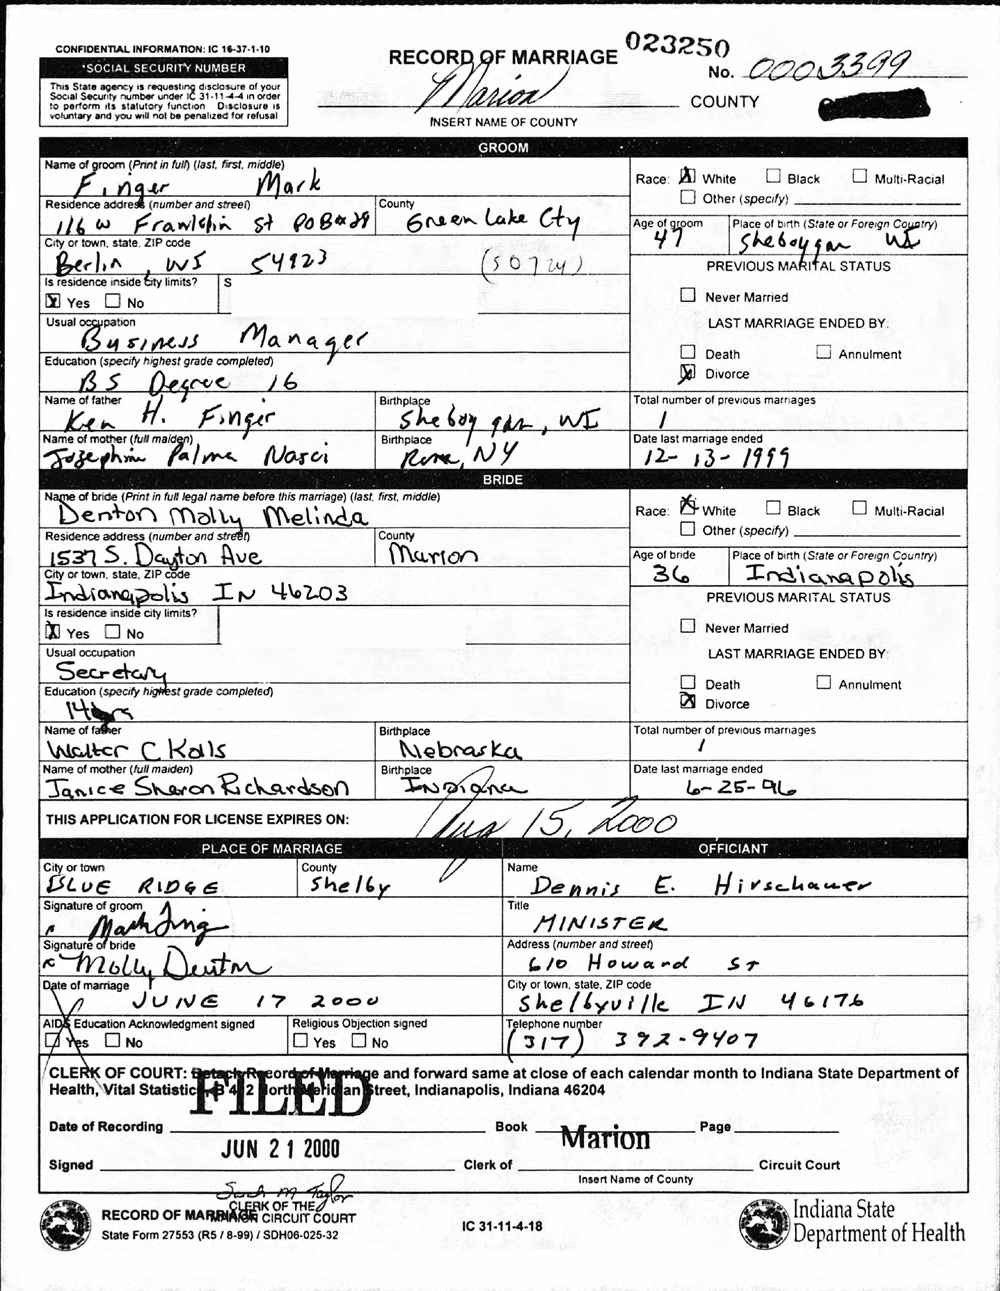 CONFIDENTIAL INFORMATION: IC 16-37-1-10
*SOCIAL SECURITY NUMBER
This State agency is requesting disclosure of your
Social Security number under IC 31-11-4-4 in order
to perform its statutory function Disclosure is
voluntary and you will not be penalized for refusal
RECORD OF MARRIAGE
023250
No. 0003399
Marion COUNTY
INSERT NAME OF COUNTY
GROOM
Name of groom (Print in full) (last, first, middle)
Finger Mark
Race: White Black Multi-Racial
Other (specify)
Residence address (number and street)
116 W Franklin St PO Box 28
County
Green Lake Cty
Age of groom
47
Place of birth (State or Foreign Country)
Sheboygan WI
City or town, state, ZIP code
Berlin, WI 54923
Is residence inside city limits?
X Yes No
S
PREVIOUS MARITAL STATUS
Never Married
LAST MARRIAGE ENDED BY:
Death Annulment
X Divorce
Usual occupation
Business Manager
Education (specify highest grade completed)
BS Degree 16
Name of father
Ken H. Finger
Birthplace
Sheboygan, WI
Total number of previous marriages
1
Name of mother (full maiden)
Josephine Palma Nasci
Birthplace
Rome, NY
Date last marriage ended
12-13-1999
BRIDE
Name of bride (Print in full legal name before this marriage) (last, first, middle)
Denton Molly Melinda
Race: X White Black Multi-Racial
Other (specify)
Residence address (number and street)
1537 S. Dayton Ave
County
Marion
Age of bride
36
Place of birth (State or Foreign Country)
Indianapolis
City or town, state, ZIP code
Indianapolis IN 46203
Is residence inside city limits?
X Yes No
PREVIOUS MARITAL STATUS
Never Married
LAST MARRIAGE ENDED BY:
Death Annulment
X Divorce
Usual occupation
Secretary
Education (specify highest grade completed)
14
Name of father
Walter C Kolls
Birthplace
Nebraska
Total number of previous marriages
1
Name of mother (full maiden)
Janice Sharon Richardson
Birthplace
Indiana
Date last marriage ended
6-25-96
THIS APPLICATION FOR LICENSE EXPIRES ON: Aug 15, 2000
PLACE OF MARRIAGE
OFFICIANT
City or town
BLUE RIDGE
County
Shelby
Name
Dennis E. Hirschauer
Signature of groom
Mark Fing
Title
MINISTER
Signature of bride
x Molly Denton
Address (number and street)
610 Howard St
Date of marriage
JUNE 17 2000
City or town, state, ZIP code
Shelbyville IN 46176
AIDS Education Acknowledgment signed
Yes No
Religious Objection signed
Yes No
Telephone number
(317) 392-9407
CLERK OF COURT: Detach Record of Marriage and forward same at close of each calendar month to Indiana State Department of
Health, Vital Statistics, B 4 2 North Meridian Street, Indianapolis, Indiana 46204
FILED
Date of Recording Book Page
JUN 21 2000
Marion
Signed Clerk of Circuit Court
Insert Name of County
Sarah M Taylor
CLERK OF THE
MARION CIRCUIT COURT
RECORD OF MARRIAGE
State Form 27553 (R5 / 8-99) / SDH06-025-32
IC 31-11-4-18
Indiana State
Department of Health